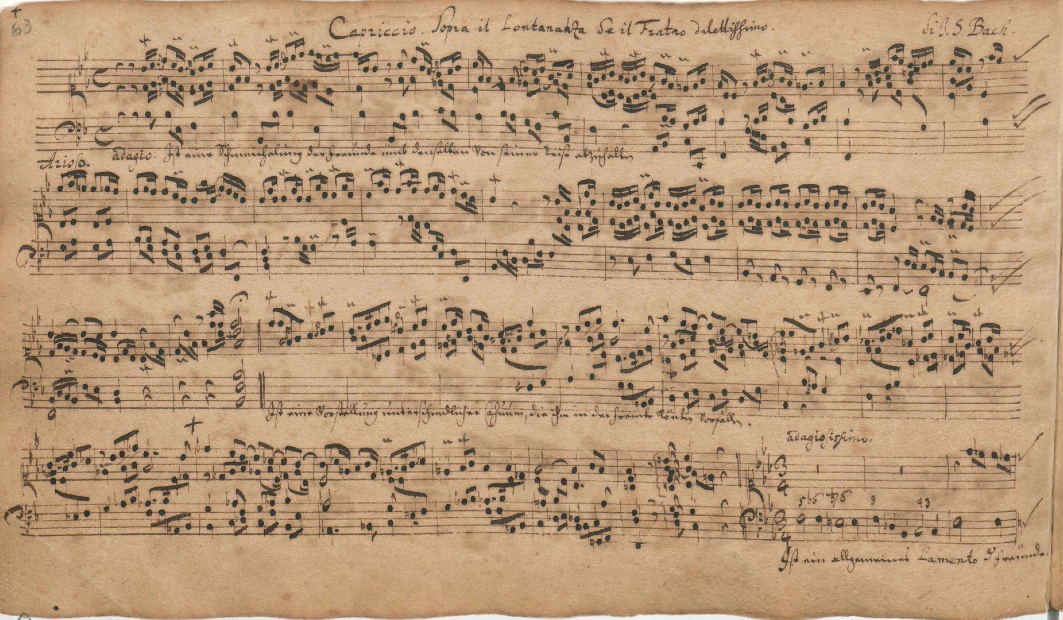 63
Capriccio. Sopra il Lontananza de il Fratro dilettissimo. di J. S. Bach.
Arioso. adagio. Ist eine Schmeichelung der Freunde umb denselben von seiner Reise abzuhalten
Ist eine Vorstellung unterschiedlicher Casuum, die ihm in der frembde könten vorfallen.
adagiosissimo.
Ist ein allgemeines Lamento d Freunde